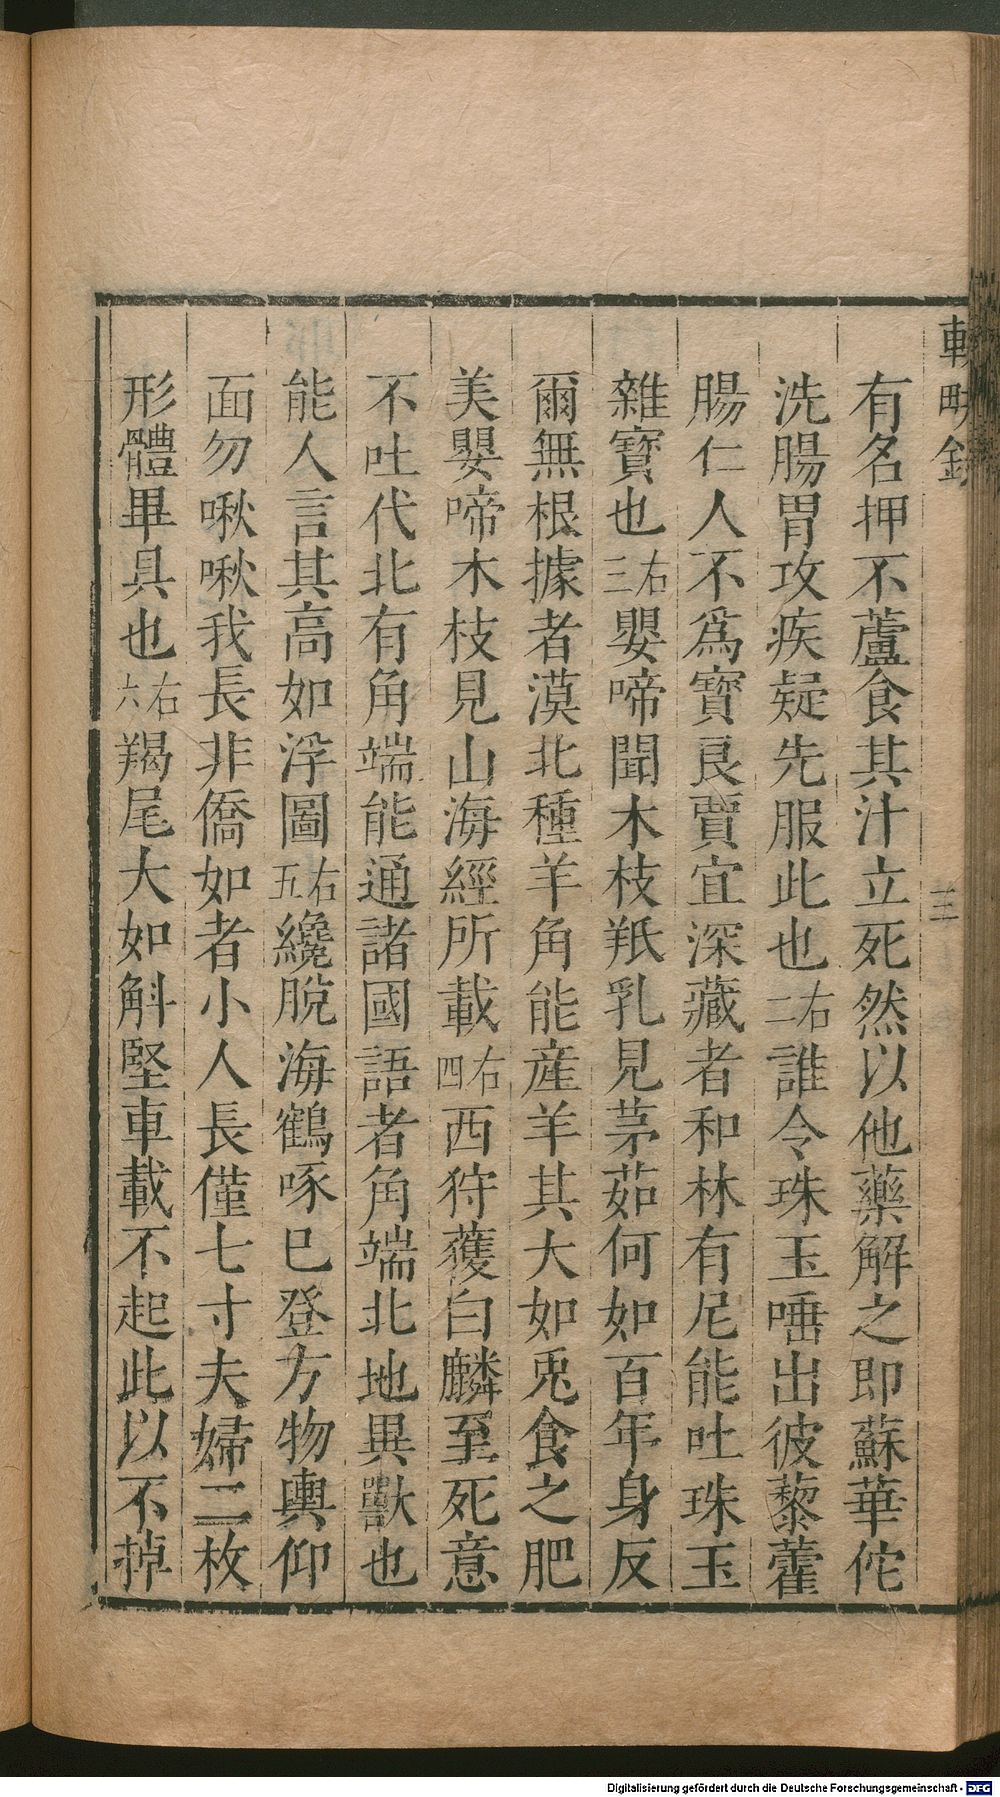 輟畊錄
三
有名押不蘆食其汁立死然以他藥解之即蘇華佗
洗腸胃攻疾疑先服此也右二誰令珠玉唾出彼藜藿
腸仁人不爲寳良賈宜深藏者和林有尼能吐珠玉
雜寳也右三嬰啼聞木枝羝乳見茅茹何如百年身反
爾無根據者漠北種羊角能産羊其大如兎食之肥
美嬰啼木枝見山海經所載右四西狩獲白麟至死意
不吐代北有角端能通諸國語者角端北地異獸也
能人言其高如浮圖右五纔脫海鶴啄已登方物輿仰
面勿啾啾我長非僑如者小人長僅七寸夫婦二枚
形體畢具也右六羯尾大如斛堅車載不起此以不掉
Digitalisierung gefördert durch die Deutsche Forschungsgemeinschaft - DFG